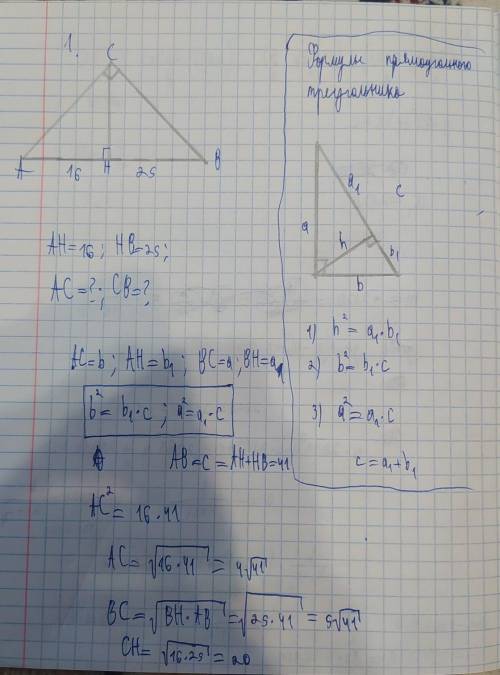 1.
C
A
16
H
25
B
AH=16; HB=25;
AC=?; CB=?
AC=b; AH=b₁; BC=a; BH=a₁
b²=b₁·c; a²=a₁·c
AB=C=AH+HB=41
AC²=16·41
AC=√16·41=4√41
BC=√BH·AB=√25·41=5√41
CH=√16·25=20
Формулы прямоугольного
треугольника
a₁
c
a
h
b₁
b
1) h²=a₁·b₁
2) b²=b₁·c
3) a²=a₁·c
c=a₁+b₁